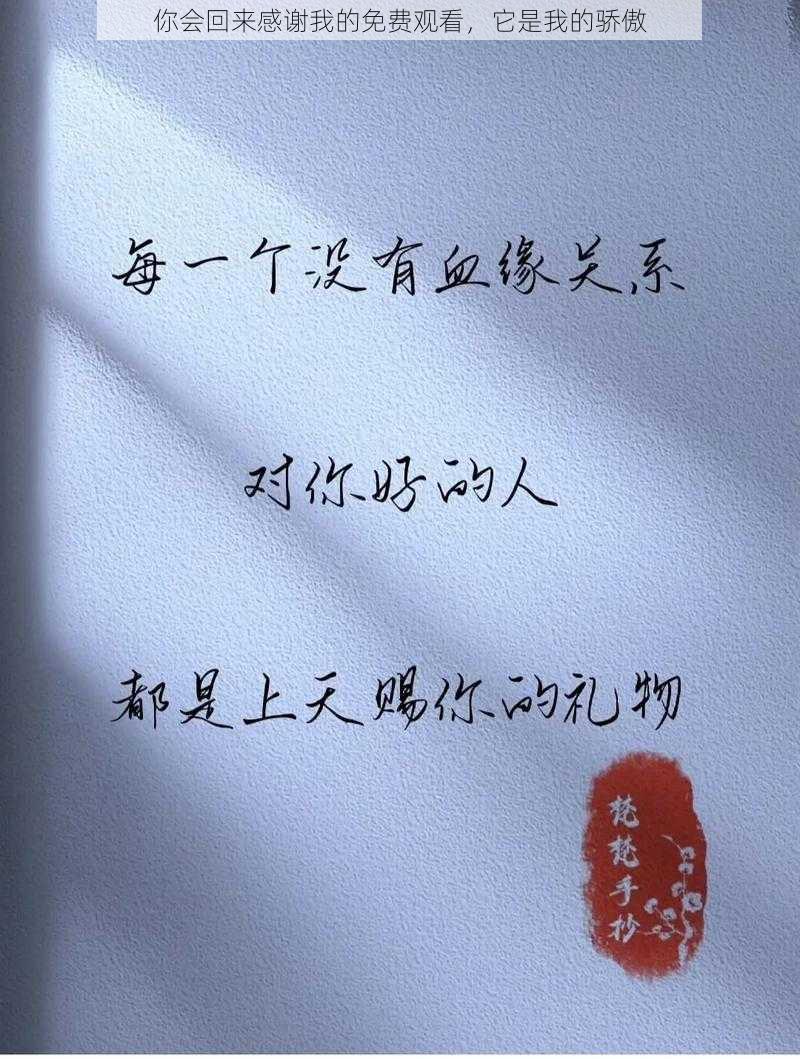 你会回来感谢我的免费观看，它是我的骄傲
每一个没有血缘关系
对你好的人
都是上天赐你的礼物
梵梵手抄